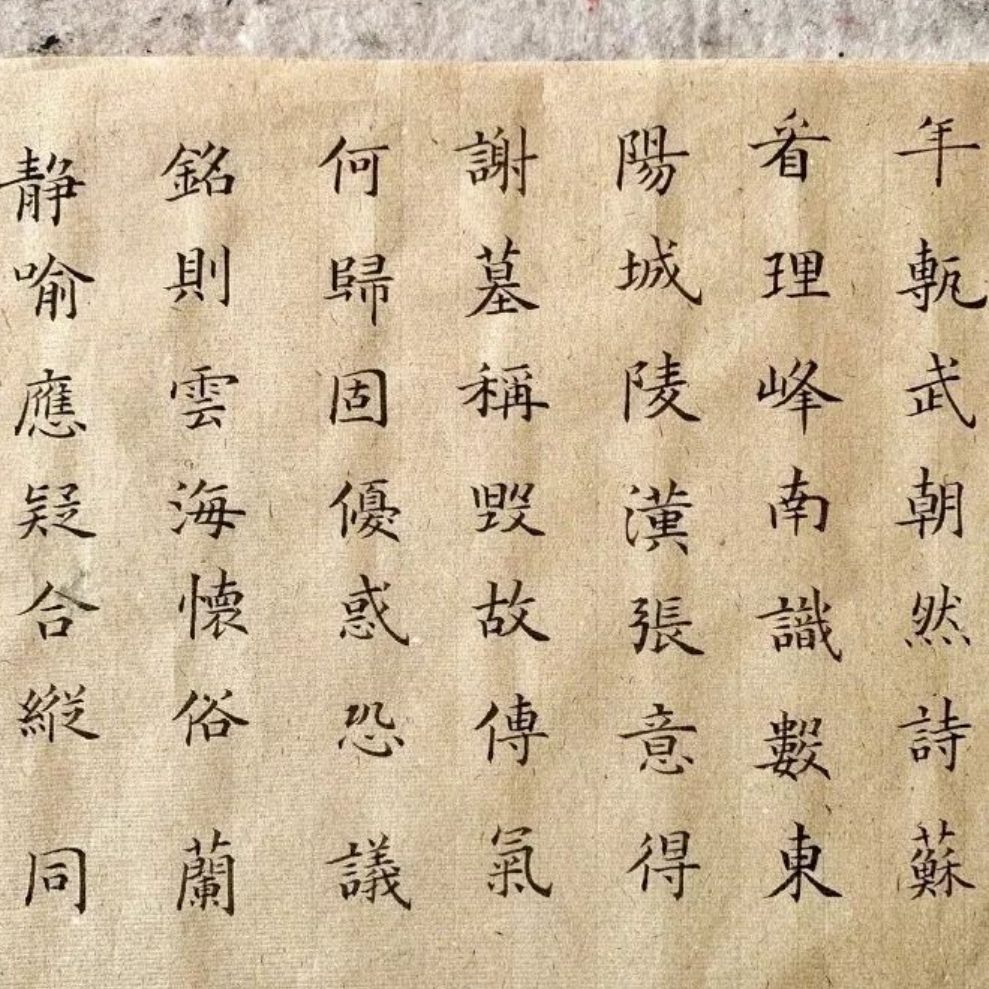 年甎武朝然詩蘇
看理峰南識數東
陽城陵漢張意得
謝墓稱毀故傳氣
何歸固優惑恐議
銘則雲海懷俗蘭
靜喻應疑合縱同